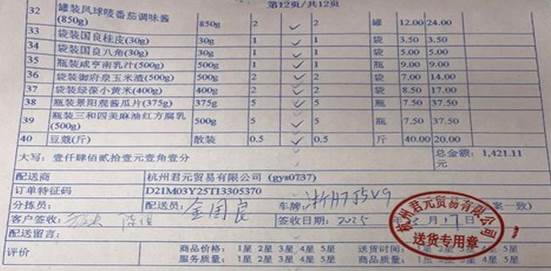 第12页/共12页
32 罐装凤球唛番茄调味酱(850g) 850g 2 ✓ 2 罐 12.00 24.00
33 袋装国良桂皮(30g) 30g 1 1 3.50 3.50
34 袋装国良八角(30g) 30g 1 1 5.00 5.00
35 瓶装咸亨南乳汁(500g) 500g 1 1 9.00 9.00
36 袋装御府泉玉米渣(500g) 500g 2 2 7.00 14.00
37 袋装绿葆小黄米(400g) 400g 2 2 8.50 17.00
38 瓶装景阳观酱瓜片(375g) 375g 5 5 7.50 37.50
39 瓶装三和四美麻油红方腐乳(500g) 500g 5 5 7.50 37.50
40 豆蔻(斤) 散装 0.5 0.5 40.00 20.00
大写:壹仟肆佰贰拾壹元壹角壹分 总金额: 1,421.11元
配送商 杭州君元贸易有限公司 (gys0737)
订单特征码 D21M03Y25T13305370
分拣员: 配送员: 金国良 车牌: 案一致)
客户签收: 签收日期: 2025
配送留言:
评价 商品价格: 1星 2星 3星 4星 5星 送货时间: 星 5星
商品质量: 1星 2星 3星 4星 5星 服务质量: 1星 2星 3星 4星 5星
杭州君元贸易有限公司
送货专用章